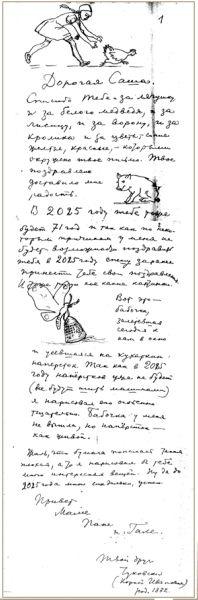 1
Дорогая Саша.
Спасибо тебе за лягушку
и за белого медведя, и за
лисицу, и за ворону, и за
кролика и за цветы, синие
желтые, красные, – которыми
окружено твое письмо. Твое
поздравление
доставило мне
радость.
В 2025 году тебе уже
будет 71 год и так как по неко-
торым причинам у меня не
будет возможности поздравить
тебя в 2025 году спешу заранее
принести тебе свои поздравления
Вот это –
бабочка,
залетевшая
сегодня к
нам в окно
и усевшаяся на
наперсток. Так как в 2025
году наперстков уже не будет
(все будут шить машинами)
я нарисовал его особенно
тщательно. Бабочка у меня
не вышла, но наперсток –
как живой.
Жаль, что бумага
плохая, а то я нарисовал бы тебе
много интересных вещей. Ну да до
2025 года
Привет
Маме
Папе
и Гале.
Твой друг
Чуковский
(Корней Иванович)
род. 1882.